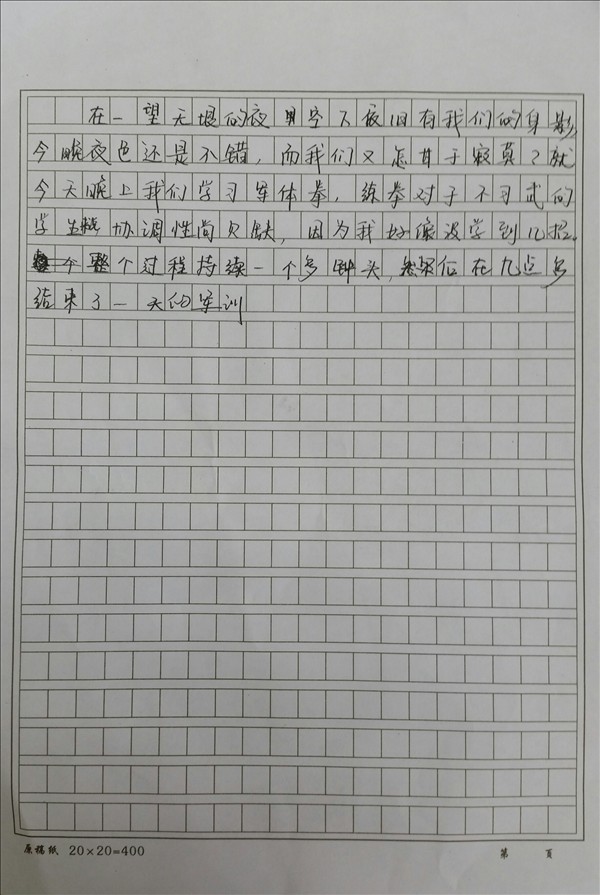 在一望无垠的夜星空下夜旧有我们的身影,
今晚夜色还是不错,而我们又怎甘于寂寞?就
今天晚上我们学习军体拳,练拳对于不习武的
学生协调性尚欠缺,因为我好像没学到几招。
今整个过程持续一个多钟头,然后在九点多
结束了一天的军训
原稿纸 20×20=400 第 页